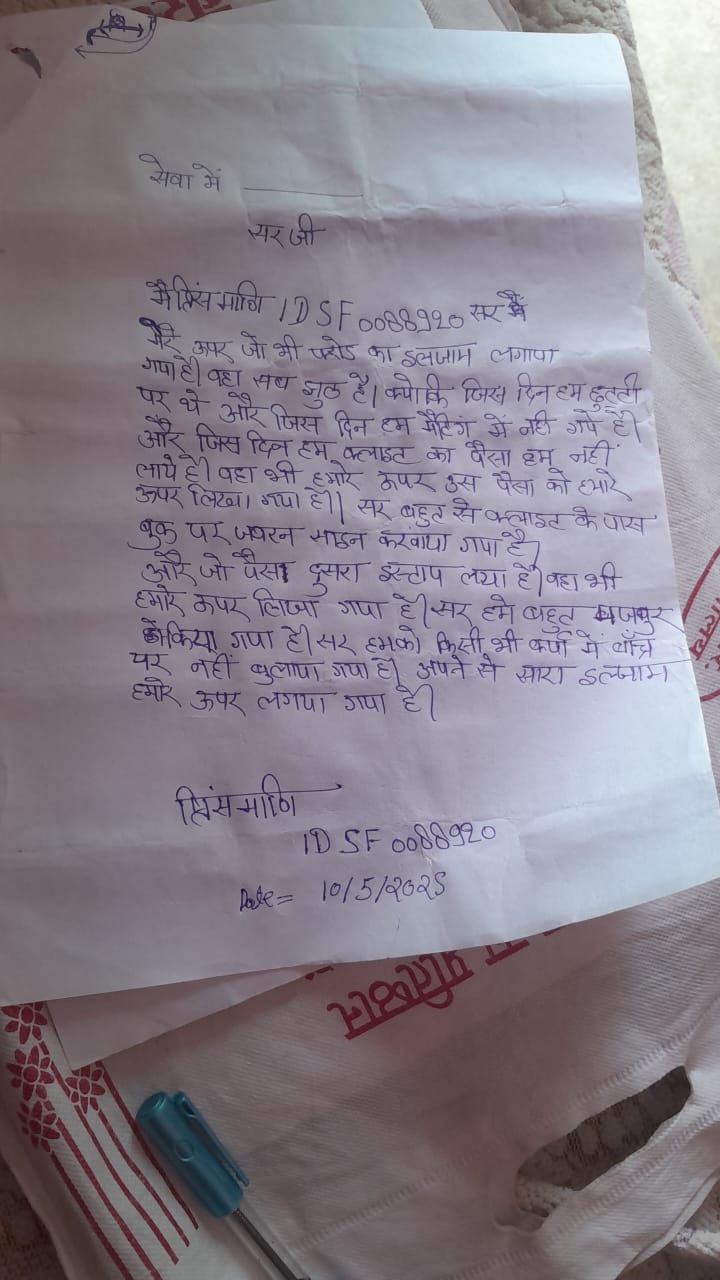 सेवा में
सर जी
मै प्रिंस माणि ID SF 0088920 सर मै
मेरे ऊपर जो भी फ्रोड का इलजाम लगापा
गपा है। वहा सब झुठ है। क्योकि जिस दिन हम छुट्टी
पर थे और जिस दिन हम मैटिंग में नही गपे है।
और जिस दिन हम क्लाइट का पैसा हम नहीं
लाये है। वहा भी हमोरे ऊपर उस पैसा को हमोरे
ऊपर लिखा गपा है।। सर बहुट से क्लाइट के पास
बुक पर जबरन साइन करवापा गपा है।
और जो पैसा दुसरा इस्टाप लया है। वहा भी
हमोरे ऊपर लिखा गपा है। सर हमे बहुट मजबुर
किया गपा है। सर हमको किसी भी में ब्राँच
पर नहीं बुलापा गपा है। अपने से सारा इलजाम
हमोरे ऊपर लगपा गपा है।
प्रिंस माणि
ID SF 0088920
Date = 10/5/2025
प्रतिष्ठान